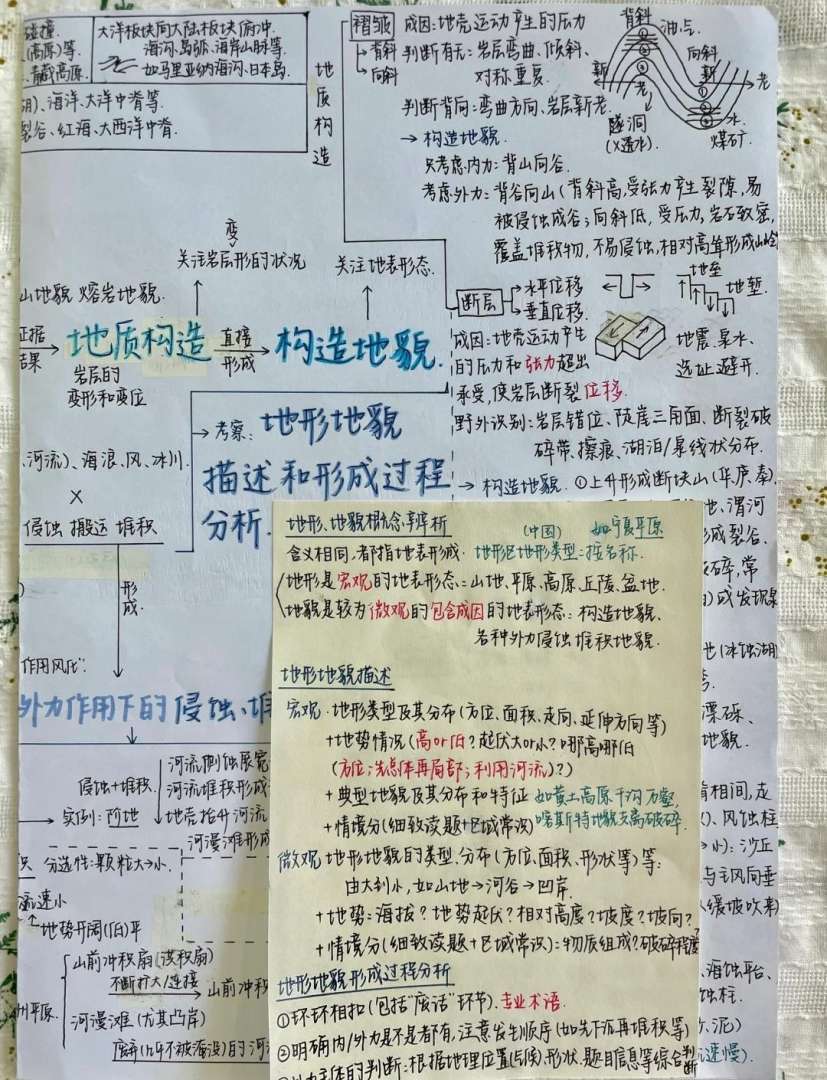 碰撞.
(高原)等.
青藏高原.
大洋板块向大陆板块俯冲.
海沟、岛弧、海岸山脉等.
如马里亚纳海沟、日本岛.
、海洋、大洋中脊等.
裂谷、红海、大西洋中脊.
地质构造
褶皱
背斜
向斜
成因:地壳运动产生的压力
判断有无:岩层弯曲、倾斜、
对称重复.
判断背向:弯曲方向、岩层新老.
→ 构造地貌.
只考虑内力:背山向谷.
考虑外力:背谷向山(背斜高,受张力产生裂隙,易
被侵蚀成谷;向斜低,受压力,岩石致密,
覆盖堆积物,不易侵蚀,相对高耸形成山岭
背斜
油气.
向斜
新
老
新
老
隧洞
(X透水).
水.
煤矿.
变
关注岩层形的状况
关注地表形态.
山地貌 熔岩地貌.
证据
结果
地质构造
直接
形成
构造地貌.
岩层的
变形和变位
断层
水平位移
垂直位移
地垒
地堑.
成因:地壳运动产生
的压力和张力超出
承受,使岩层断裂位移.
地震、泉水、
选址避开.
野外识别:岩层错位、陡崖三角面、断裂破
碎带、擦痕、湖泊/泉线状分布.
→ 构造地貌. ①上升形成断块山(华庐泰).
地、渭河
形成裂谷.
破碎,常
成发现泉
→ 考察: 地形地貌
描述和形成过程
分析.
、河流)、海浪、风、冰川.
×
侵蚀 搬运 堆积
形成.
作用风化".
外力作用下的侵蚀、堆
侵蚀+堆积.
→ 实例:阶地
河流侧蚀展宽
河流堆积形成
地壳抬升河流
河漫滩形成
分选性:颗粒大→小.
流速小
地势开阔(低)平
山前冲积扇(洪积扇)
不断扩大/连接
→ 山前冲积
州平原.
河漫滩(尤其凸岸)
废弃(几乎不被淹没)的河
地(冰蚀湖
漂砾、
地貌.
相间,走
、风蚀柱
→小):沙丘
与主风向垂
缓坡吹来)
海蚀平台、
蚀柱.
、泥)
流速慢).
地形、地貌概念辨析
(中国) 如宁夏平原
含义相同,都指地表形成. 地形区地形类型:按名称.
地形是宏观的地表形态:山地、平原、高原、丘陵、盆地.
地貌是较为微观的包含成因的地表形态:构造地貌、
各种外力侵蚀堆积地貌.
地形地貌描述
宏观.地形类型及其分布(方位、面积、走向、延伸方向等)
+地势情况(高or低?起伏大or小?哪高哪低
(方位;先总体再局部;利用河流)?)
+典型地貌及其分布和特征 如黄土高原千沟万壑,
+情境分(细致读题+区域常识) 喀斯特地貌支离破碎.
微观 地形地貌的类型、分布(方位、面积、形状等)等:
由大到小,如山地→河谷→凹岸.
+地势:海拔?地势起伏?相对高度?坡度?坡向?
+情境分(细致读题+区域常识):物质组成?破碎程度?
地形地貌形成过程分析
①环环相扣(包括"废话"环节).专业术语.
②明确内/外力是不是都有,注意发生顺序(如先下沉再堆积等)
力主体的判断:根据地理位置(气候)、形状、题目信息等综合判断